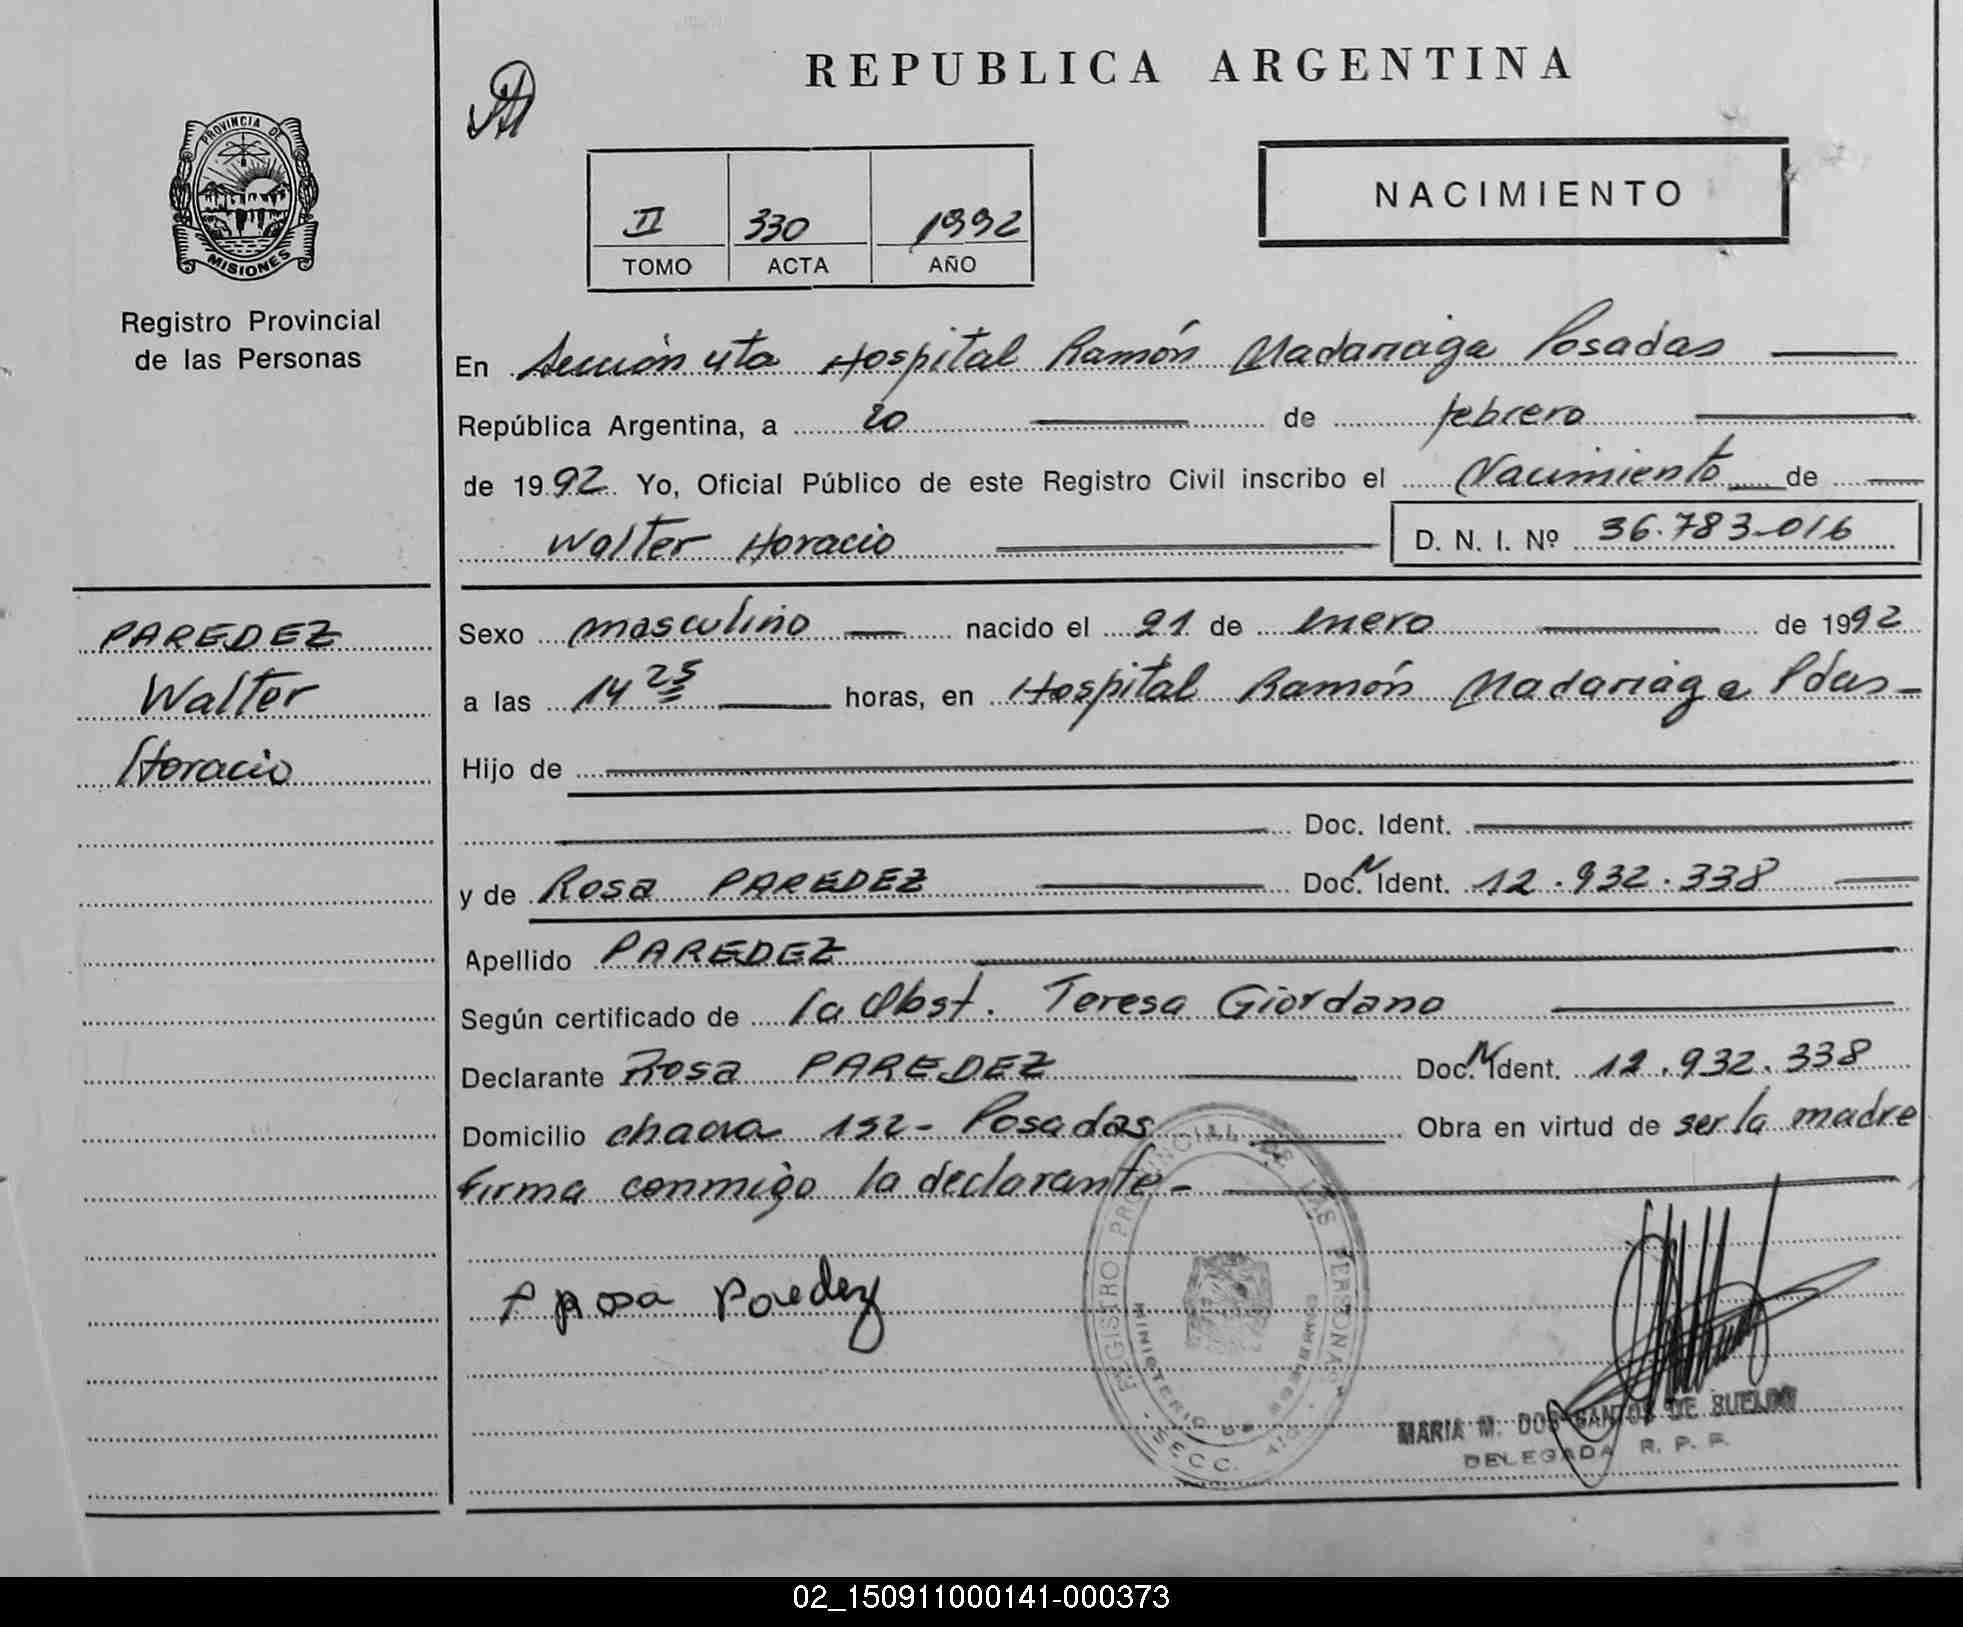 REPUBLICA ARGENTINA
PROVINCIA DE
MISIONES
Registro Provincial
de las Personas
II 330 1992
TOMO ACTA AÑO
NACIMIENTO
En Sección 4ta Hospital Ramón Madariaga Posadas
República Argentina, a 20 de febrero
de 1992. Yo, Oficial Público de este Registro Civil inscribo el Nacimiento de
Walter Horacio D. N. I. Nº 36.783.016
PAREDEZ
Walter
Horacio
Sexo masculino nacido el 21 de enero de 1992
a las 14 25 horas, en Hospital Ramón Madariaga Pdas-
Hijo de
Doc. Ident.
y de Rosa PAREDEZ Doc. N Ident. 12.932.338
Apellido PAREDEZ
Según certificado de la Obst. Teresa Giordano
Declarante Rosa PAREDEZ Doc. N Ident. 12.932.338
Domicilio chacra 152- Posadas Obra en virtud de ser la madre
firma conmigo la declarante-
Rosa Paredez
REGISTRO PROVINCIAL DE LAS PERSONAS
MINISTERIO DE GOBIERNO
SECC. 4ta
MARIA M. DOS SANTOS DE
DELEGADA R. P. P.
02_150911000141-000373